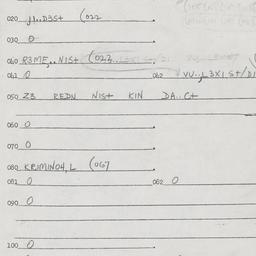 020 JJ..D3St (022
030 0
040 R3ME,..N1St (023
041 0 042 VU.,L3X1,St/D1
050 Z3 REDN N1St KIN DA..Ct
060 0
070 0
080 KRIMINO4,L (067
081 0 082 0
090 0
100 0